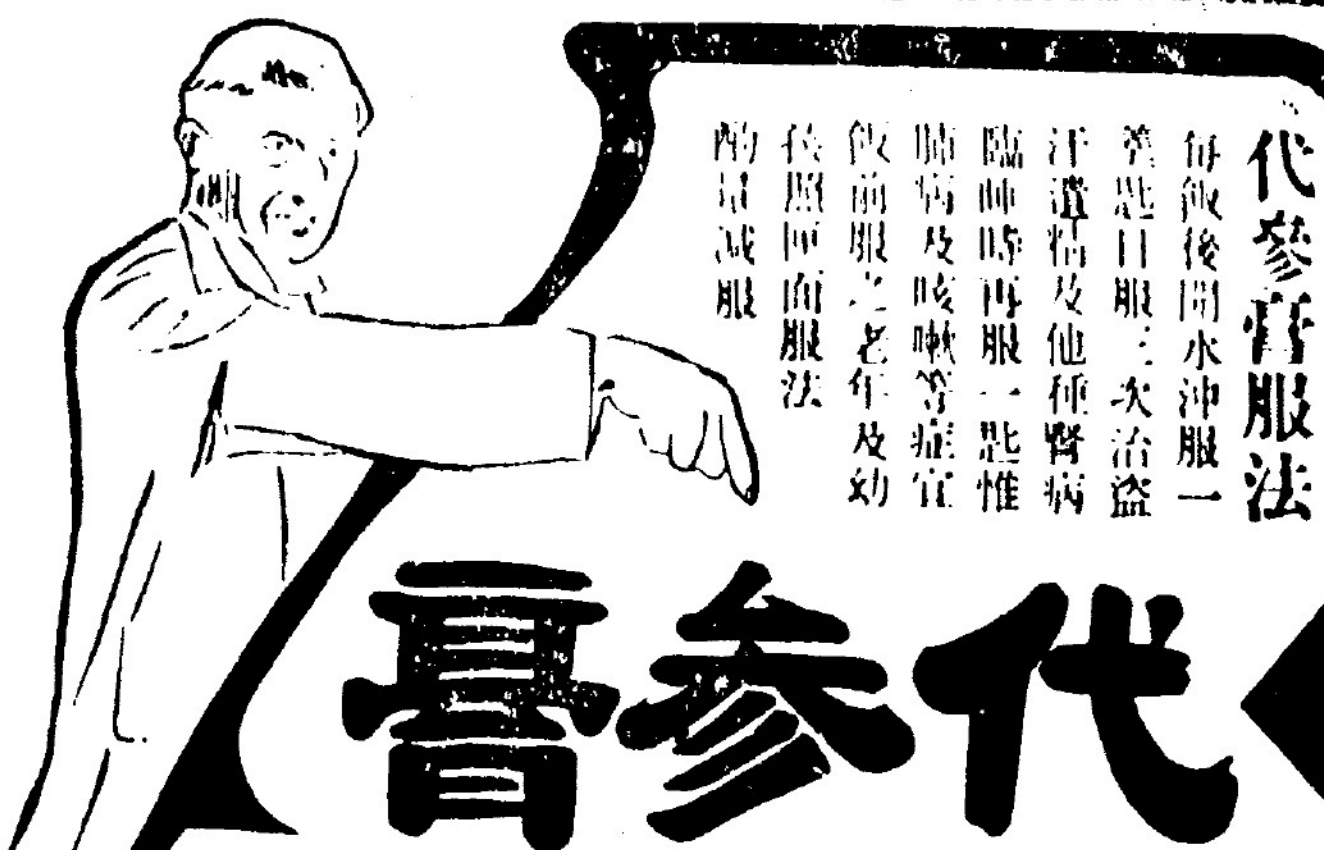 代參膏服法
每飯後開水沖服一
茶匙日服三次治盜
汗遺精及他種腎病
臨睡時再服一匙惟
肺病及咳嗽等症宜
飯前服之老年及幼
孩照匣面服法
酌量減服
代參膏